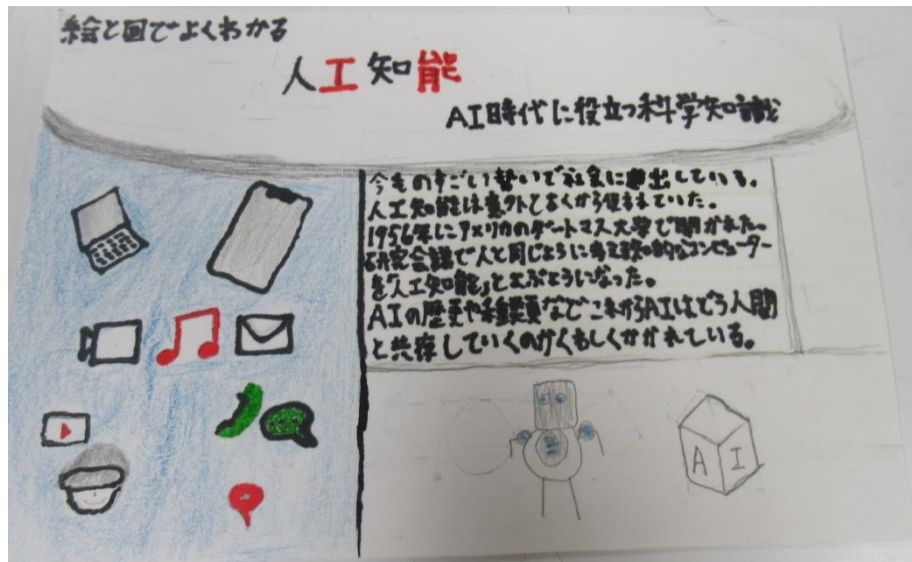 絵と図でよくわかる
人工知能
AI時代に役立つ科学知識
今ものすごい勢いで社会に進出している。
人工知能は意外とよくから使われていた。
1956年にアメリカのダートマス大学で開かれた
研究会議で人と同じように考える知的なコンピューター
を「人工知能」とよぶようになった。
AIの歴史や種類などこれからAIはどう人間
と共存していくのかくわしくかかれている。
A I